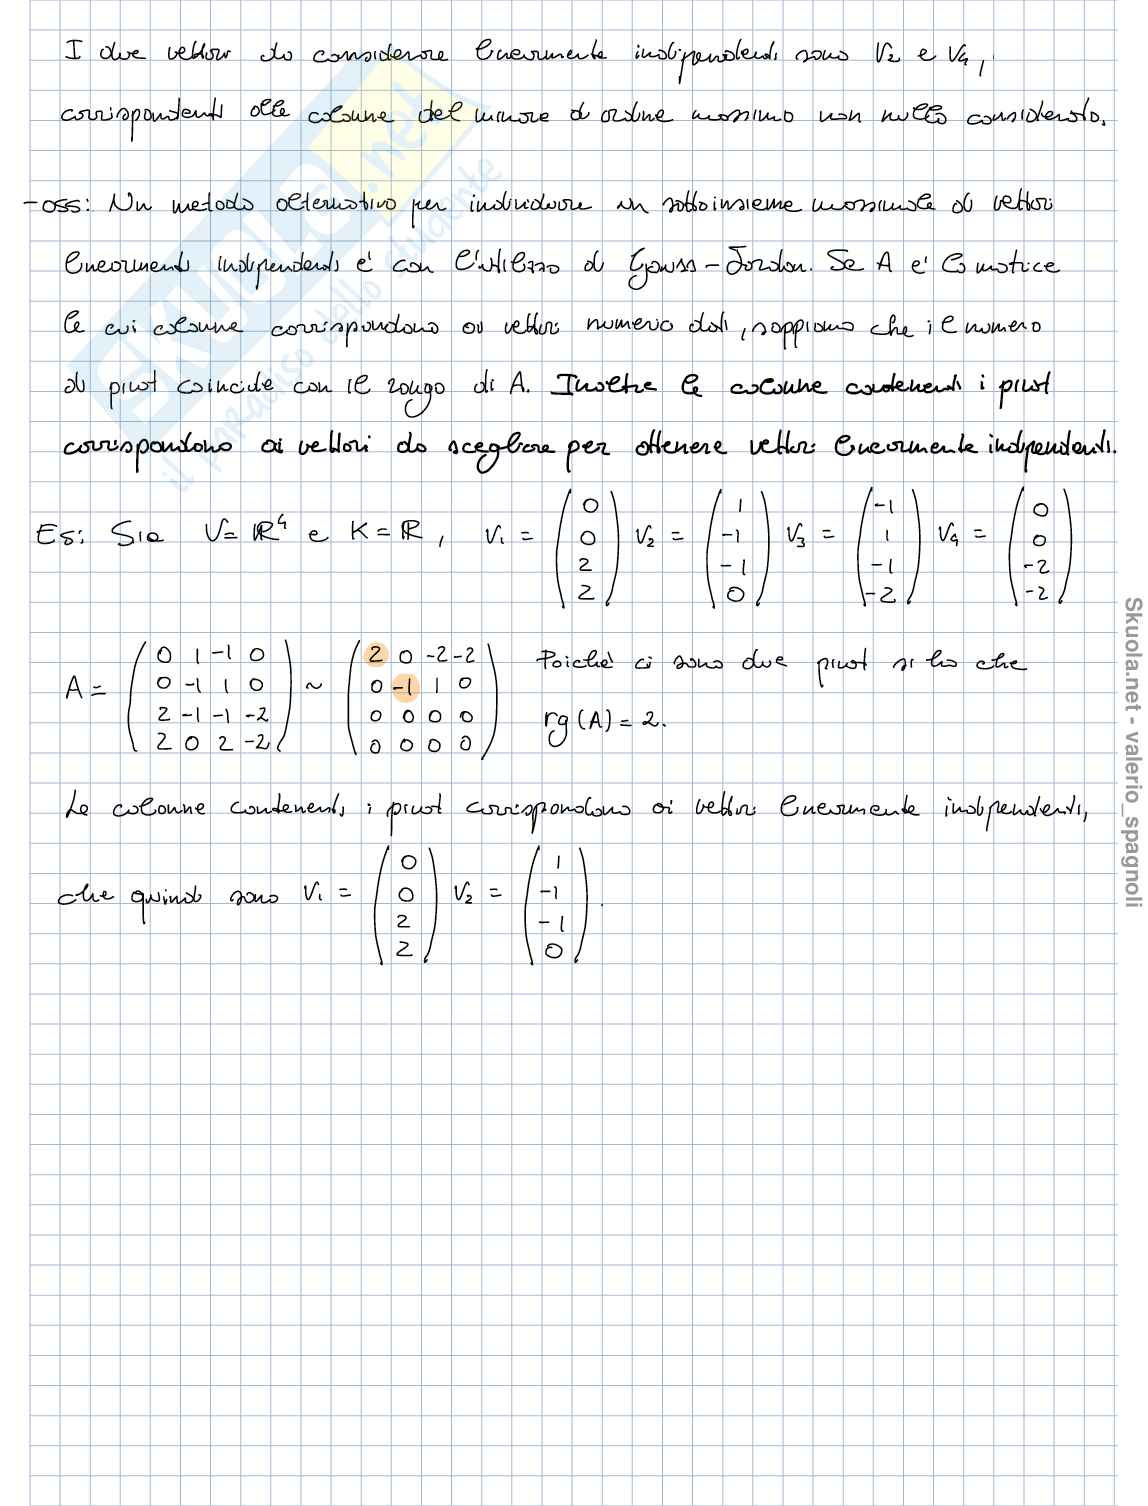 I due vettori da considerare linearmente indipendenti sono V₂ e V₄,
corrispondenti alle colonne del minore di ordine massimo non nullo considerato.
- oss: Un metodo alternativo per individuare un sottoinsieme massimale di vettori
linearmenti indipendenti e' con l'utilizzo di Gauss-Jordan. Se A e' la matrice
le cui colonne corrispondono ai vettori numerici dati, sappiamo che il numero
di pivot coincide con il rango di A. Inoltre le colonne contenenti i pivot
corrispondono ai vettori da scegliere per ottenere vettori linearmente indipendenti.
Es: Sia V = ℝ⁴ e K = ℝ, V₁ = (0 0 2 2) V₂ = (1 -1 -1 0) V₃ = (-1 1 -1 -2) V₄ = (0 0 -2 -2)
A = (0 1 -1 0 ~ (2 0 -2 -2 Poiché ci sono due pivot si ha che
0 -1 1 0 0 -1 1 0
2 -1 -1 -2 0 0 0 0 rg(A) = 2.
2 0 2 -2) 0 0 0 0)
Le colonne contenenti i pivot corrispondono ai vettori linearmente indipendenti,
che quindi sono V₁ = (0 0 2 2) V₂ = (1 -1 -1 0).
SKUOLA.net
il paradiso dello studente
Skuola.net - valerio_spagnoli